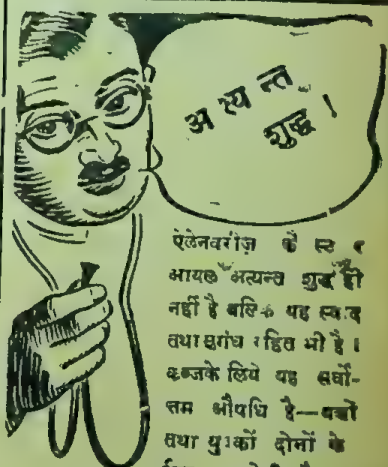 अत्यन्त
शुद्ध !
ऐलेनबरीज़ कै
आयल अत्यन्त शुद्ध ही
नहीं है बल्कि यह स्वाद
तथा सुगंध रहित भी है ।
कब्जके लिये यह सर्वो-
त्तम औषधि है—बच्चों
तथा युवकों दोनों के